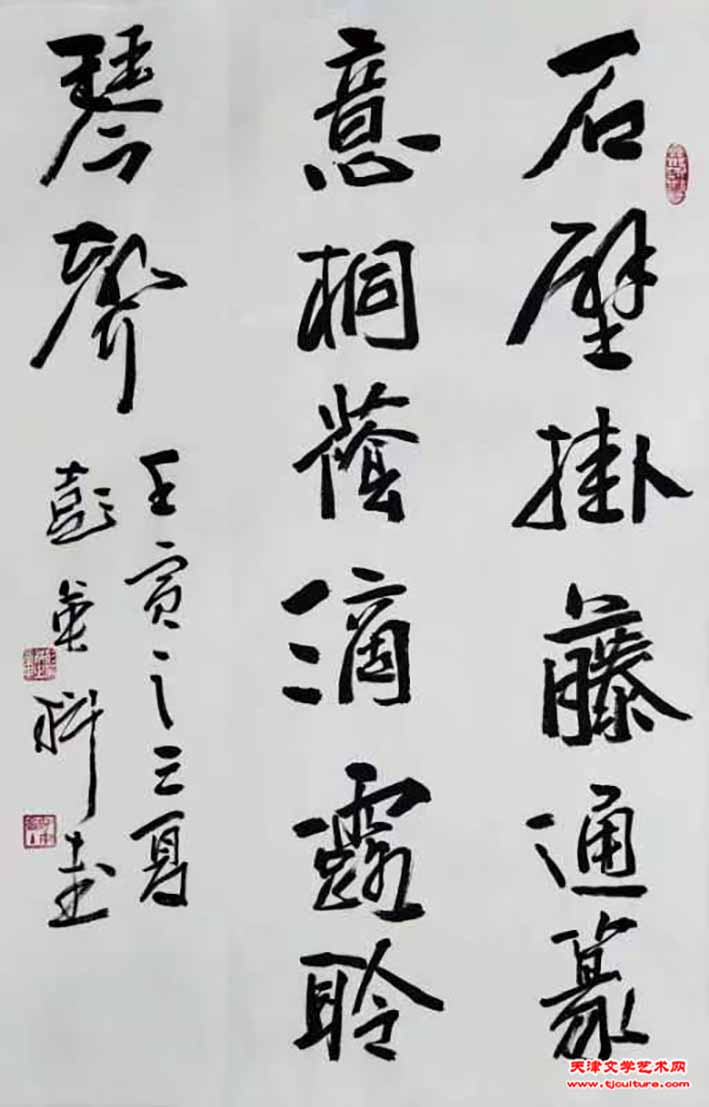 石壁掛藤通篆
意桐蔭滴露聆
琴聲
壬寅之三夏
彭英科書
天津文学艺术网
www.tjculture.com